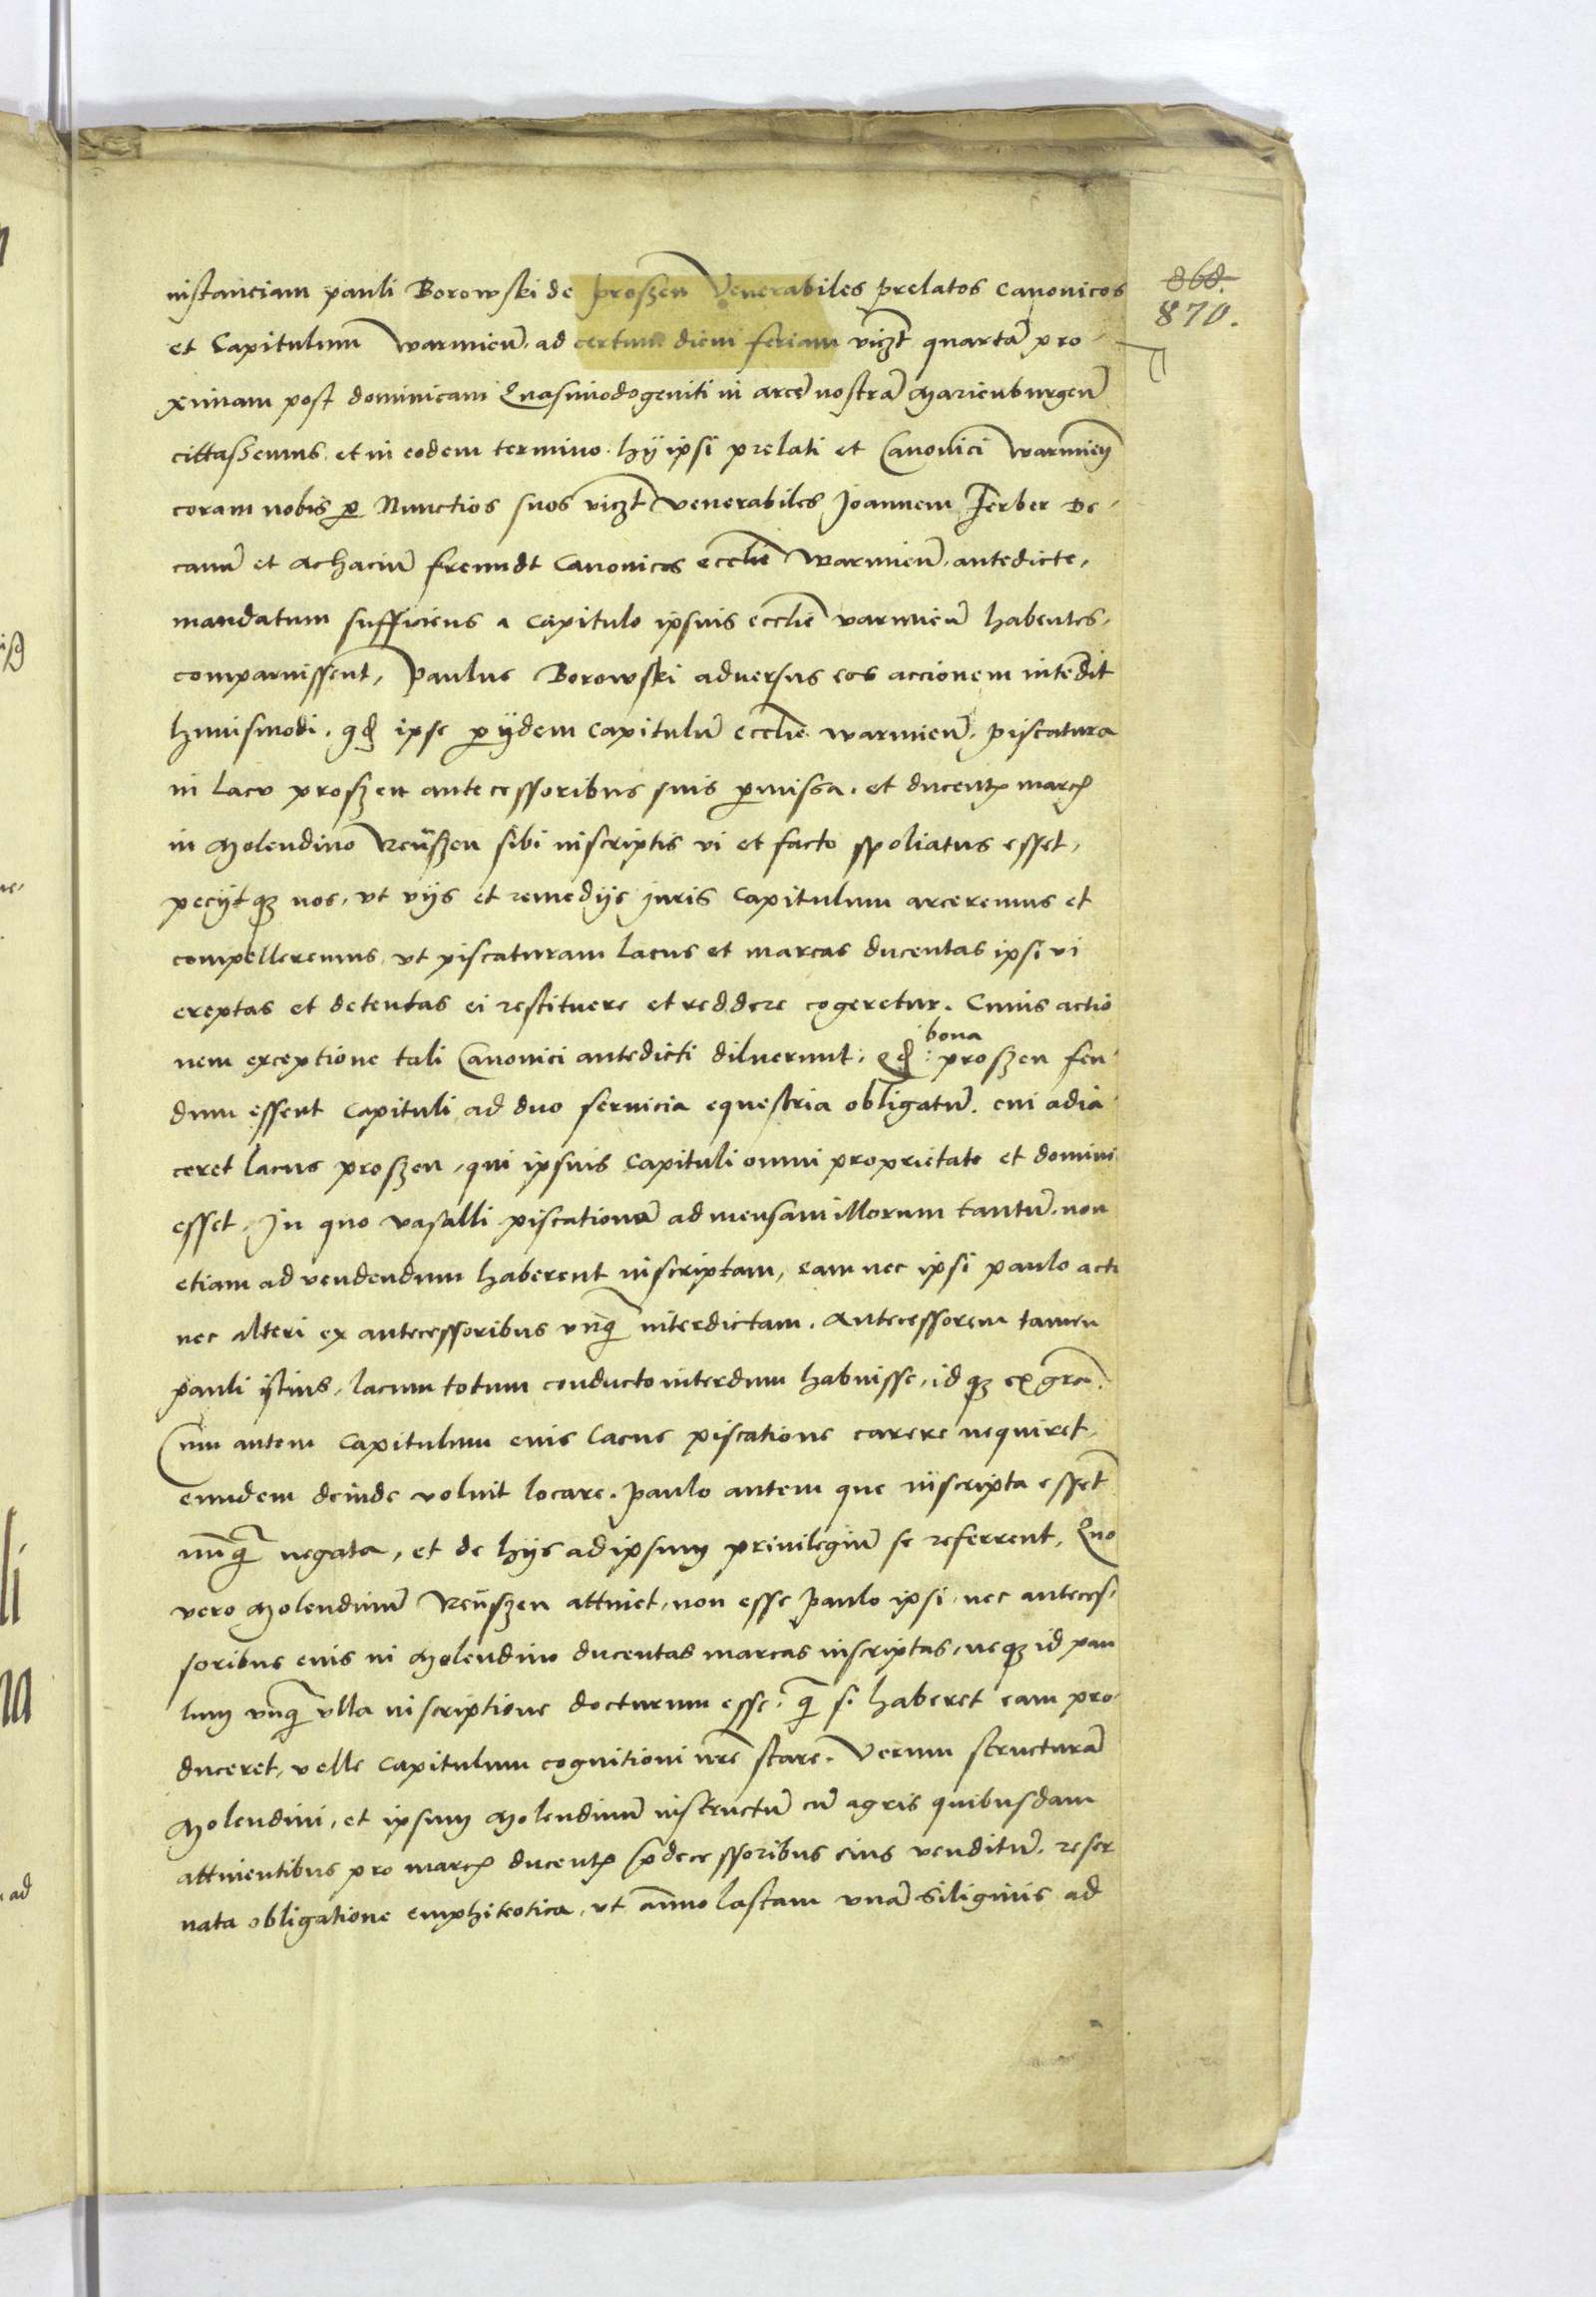 868.
870.
instanciam pauli Borowski de proszen Venerabiles prelatos Canonicos
et Capitulum warmieñ. ad certum diem feriam viczt quartã pro-
ximam post dominicam Quasimodogeniti in arcẽ nostrã Marienburgeñ
cittassemus et in eodem termino hÿ ipsi prelati et Canonici warmieñ
coram nobis ꝑ Nunctios suos viczt venerabiles Joannem Ferber De-
canũ et Achaciũ freundt Canonicos ecclie warmieñ. antedicte,
mandatum sufficiens a Capitulo ipsius ecclie varmieñ habentes,
comparuissent, Paulus Borowski adversus eos accionem intẽdit
huiusmodi. qđ ipse ꝑ ijdem Capitulũ ecclie warmieñ. piscatura
in lacu proszen antecessoribus suis ꝑmissa. et ducentꝭ marcꝭ
in Molendino Reüszen sibi inscriptis vi et facto spoliatus esset,
pecijtqꝫ nos, vt vijs et remedijs juris Capitulum arceremus et
compelleremus, vt piscaturam lacus et marcas ducentas ipsi vi
ereptas et detentas ei restituere et reddere cogeretur. Cuius actio
nem exceptione tali Canonici antedicti diluerunt. qđ : bona proszen feu-
dum essent Capituli ad duo servicia equestria obligatũ. cui adia-
ceret lacus proszen, qui ipsius Capituli omni proprietate et domini
esset. In quo vasalli piscationẽ ad mensam illorum tantũ. non
etiam ad vendendum haberent inscriptam, eam nec ipsi paulo acti
nec alteri ex antecessoribus vnq̃ interdictam. Antecessorem tamen
pauli istius, lacum totum conducto interdum habuisse, idqꝫ ex grã.
Cum autem Capitulum eius lacus piscatione carere nequiret,
eundem deinde voluit locare. paulo autem que inscripta essẽt
nũq̃ negata, et de hijs ad ipsum privilegiũ se referrent. Quo
vero Molendinũ Reüszen attinet, non esse paulo ipsi, nec anteces-
soribus eius in Molendino ducentas marcas inscriptas, neqꝫ id pau
lum vnq̃ vlla inscriptione docturum esse. q̃ si haberet eam pro-
duceret, velle Capitulum cognitioni nr̃e stare. Verum structurã
Molendini, et ipsum Molendinũ instructũ cũ agris quibusdam
attinentibus pro marcꝭ ducentꝭ p̃decessoribus eius venditũ. reser
vata obligatione emphiteotica, vt añno lastam vnã siliginis ad